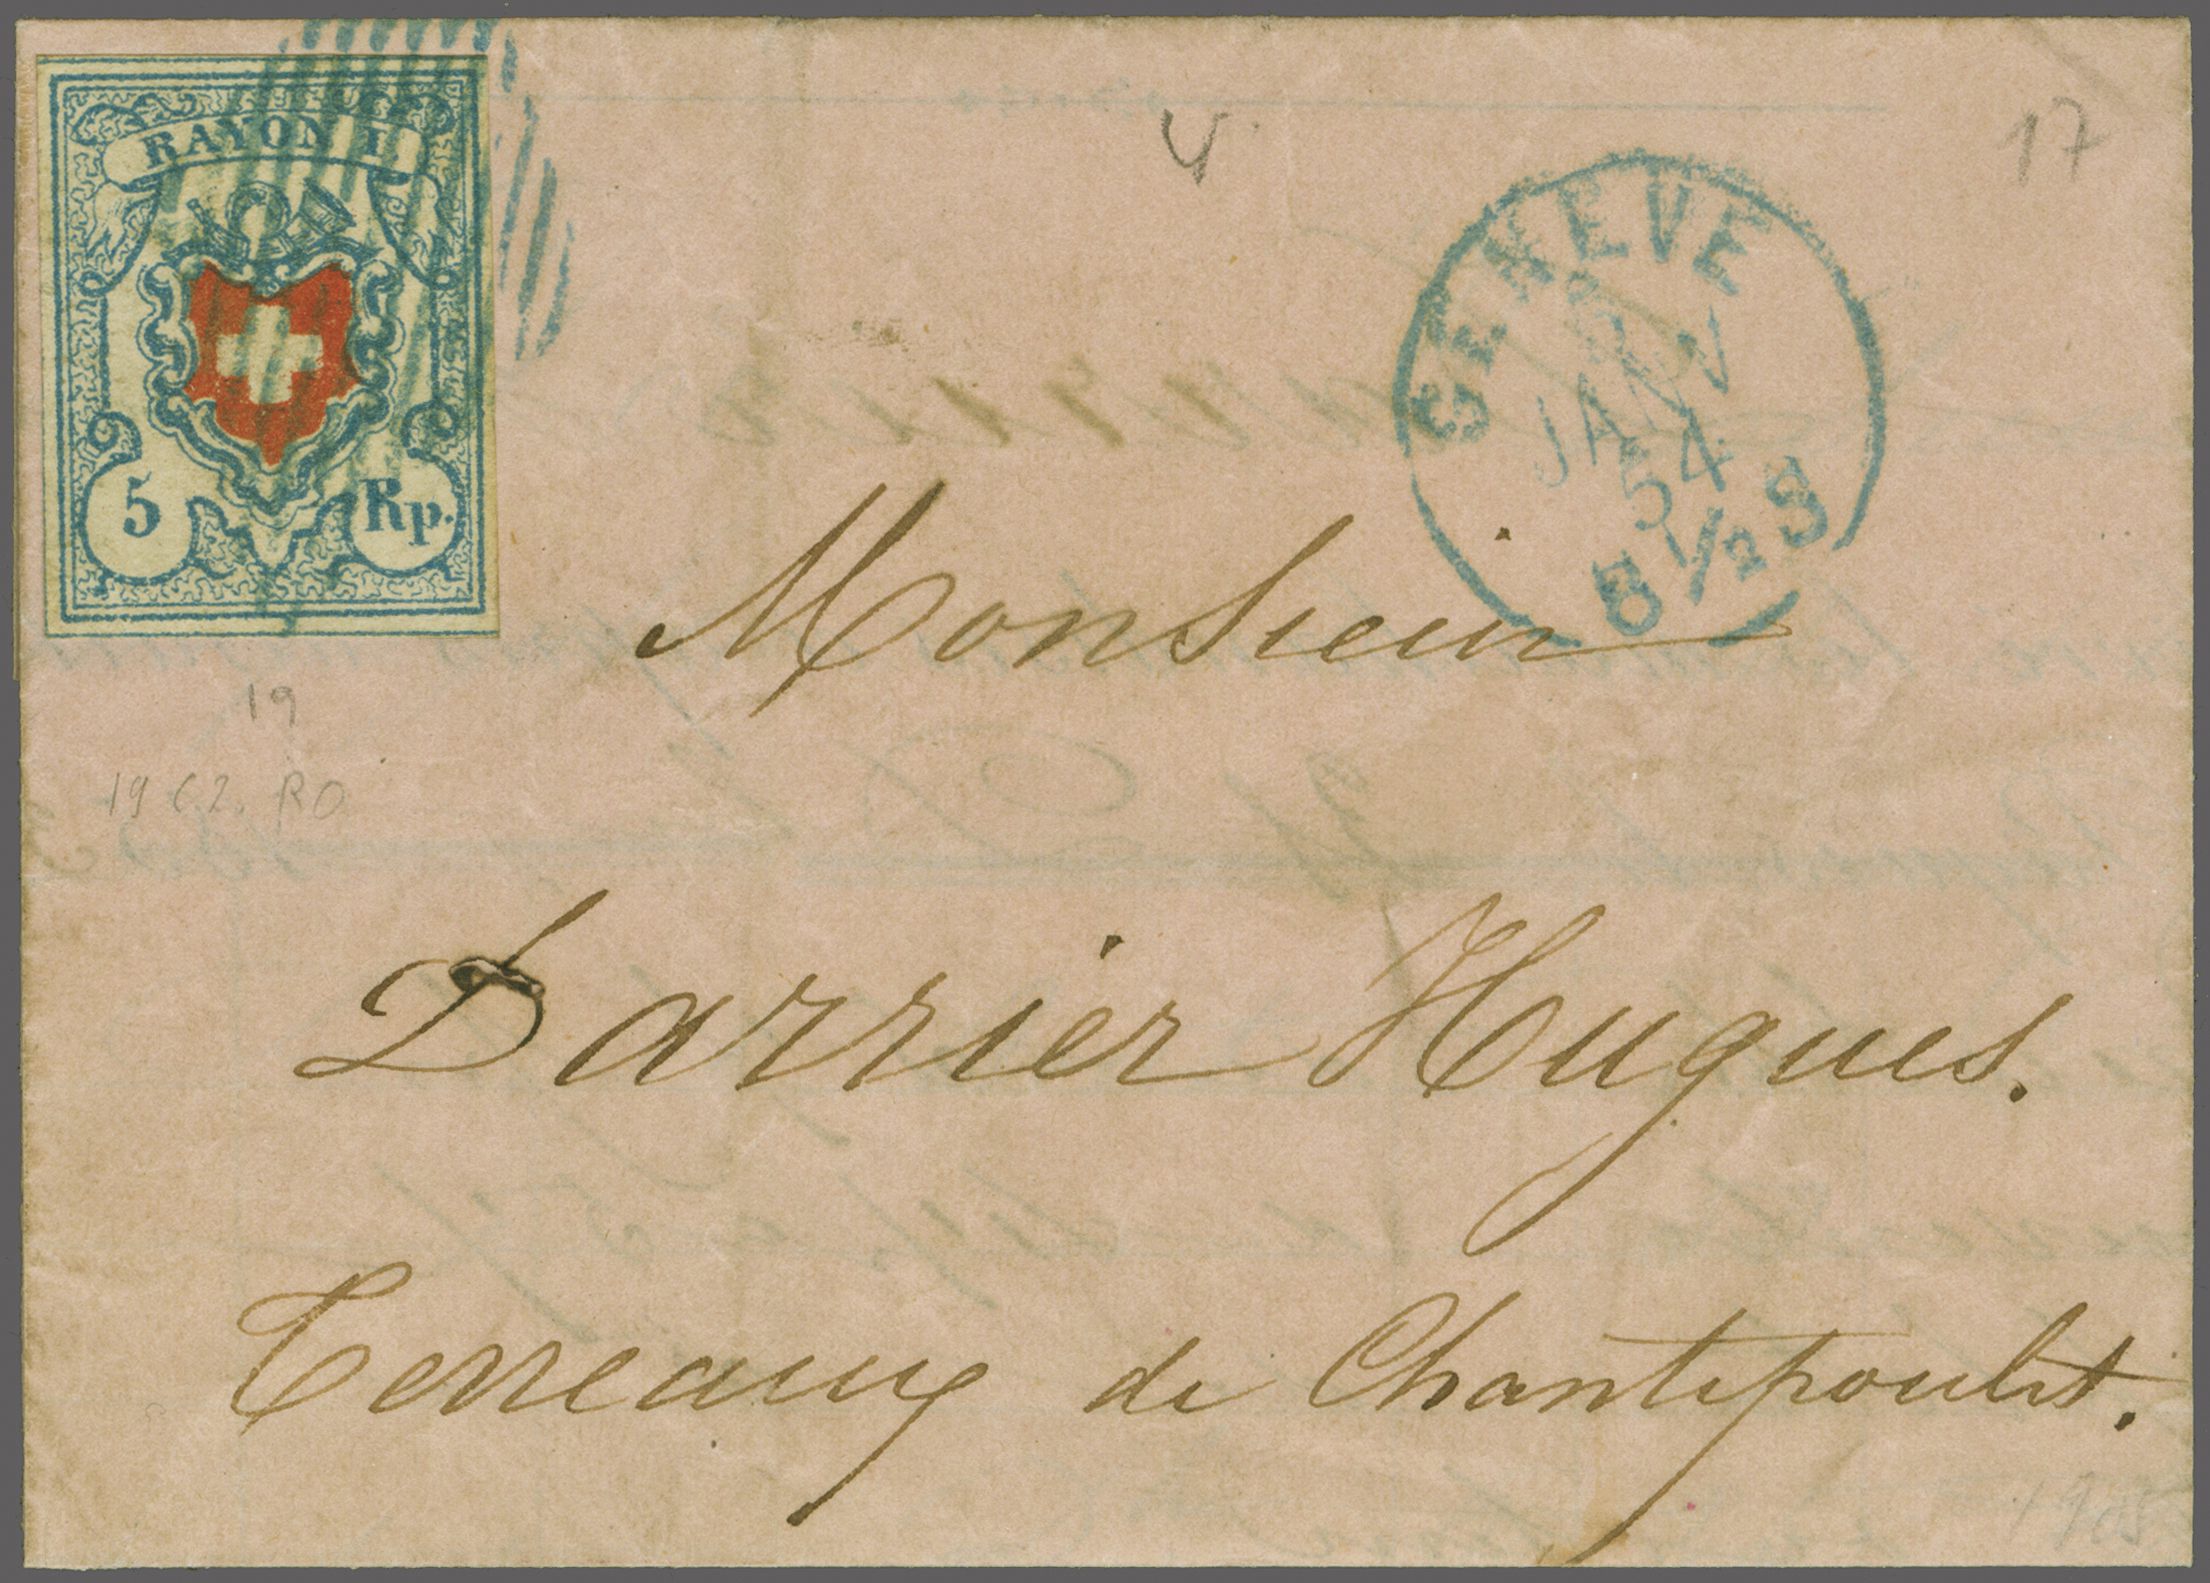 RAYON I.
5 Rp.
17
GENEVE
JANV
54
8 1/2 S
Monsieur
19
19 C2. RO
Darrier Hugues.
Terreaux de Chantepoulet.